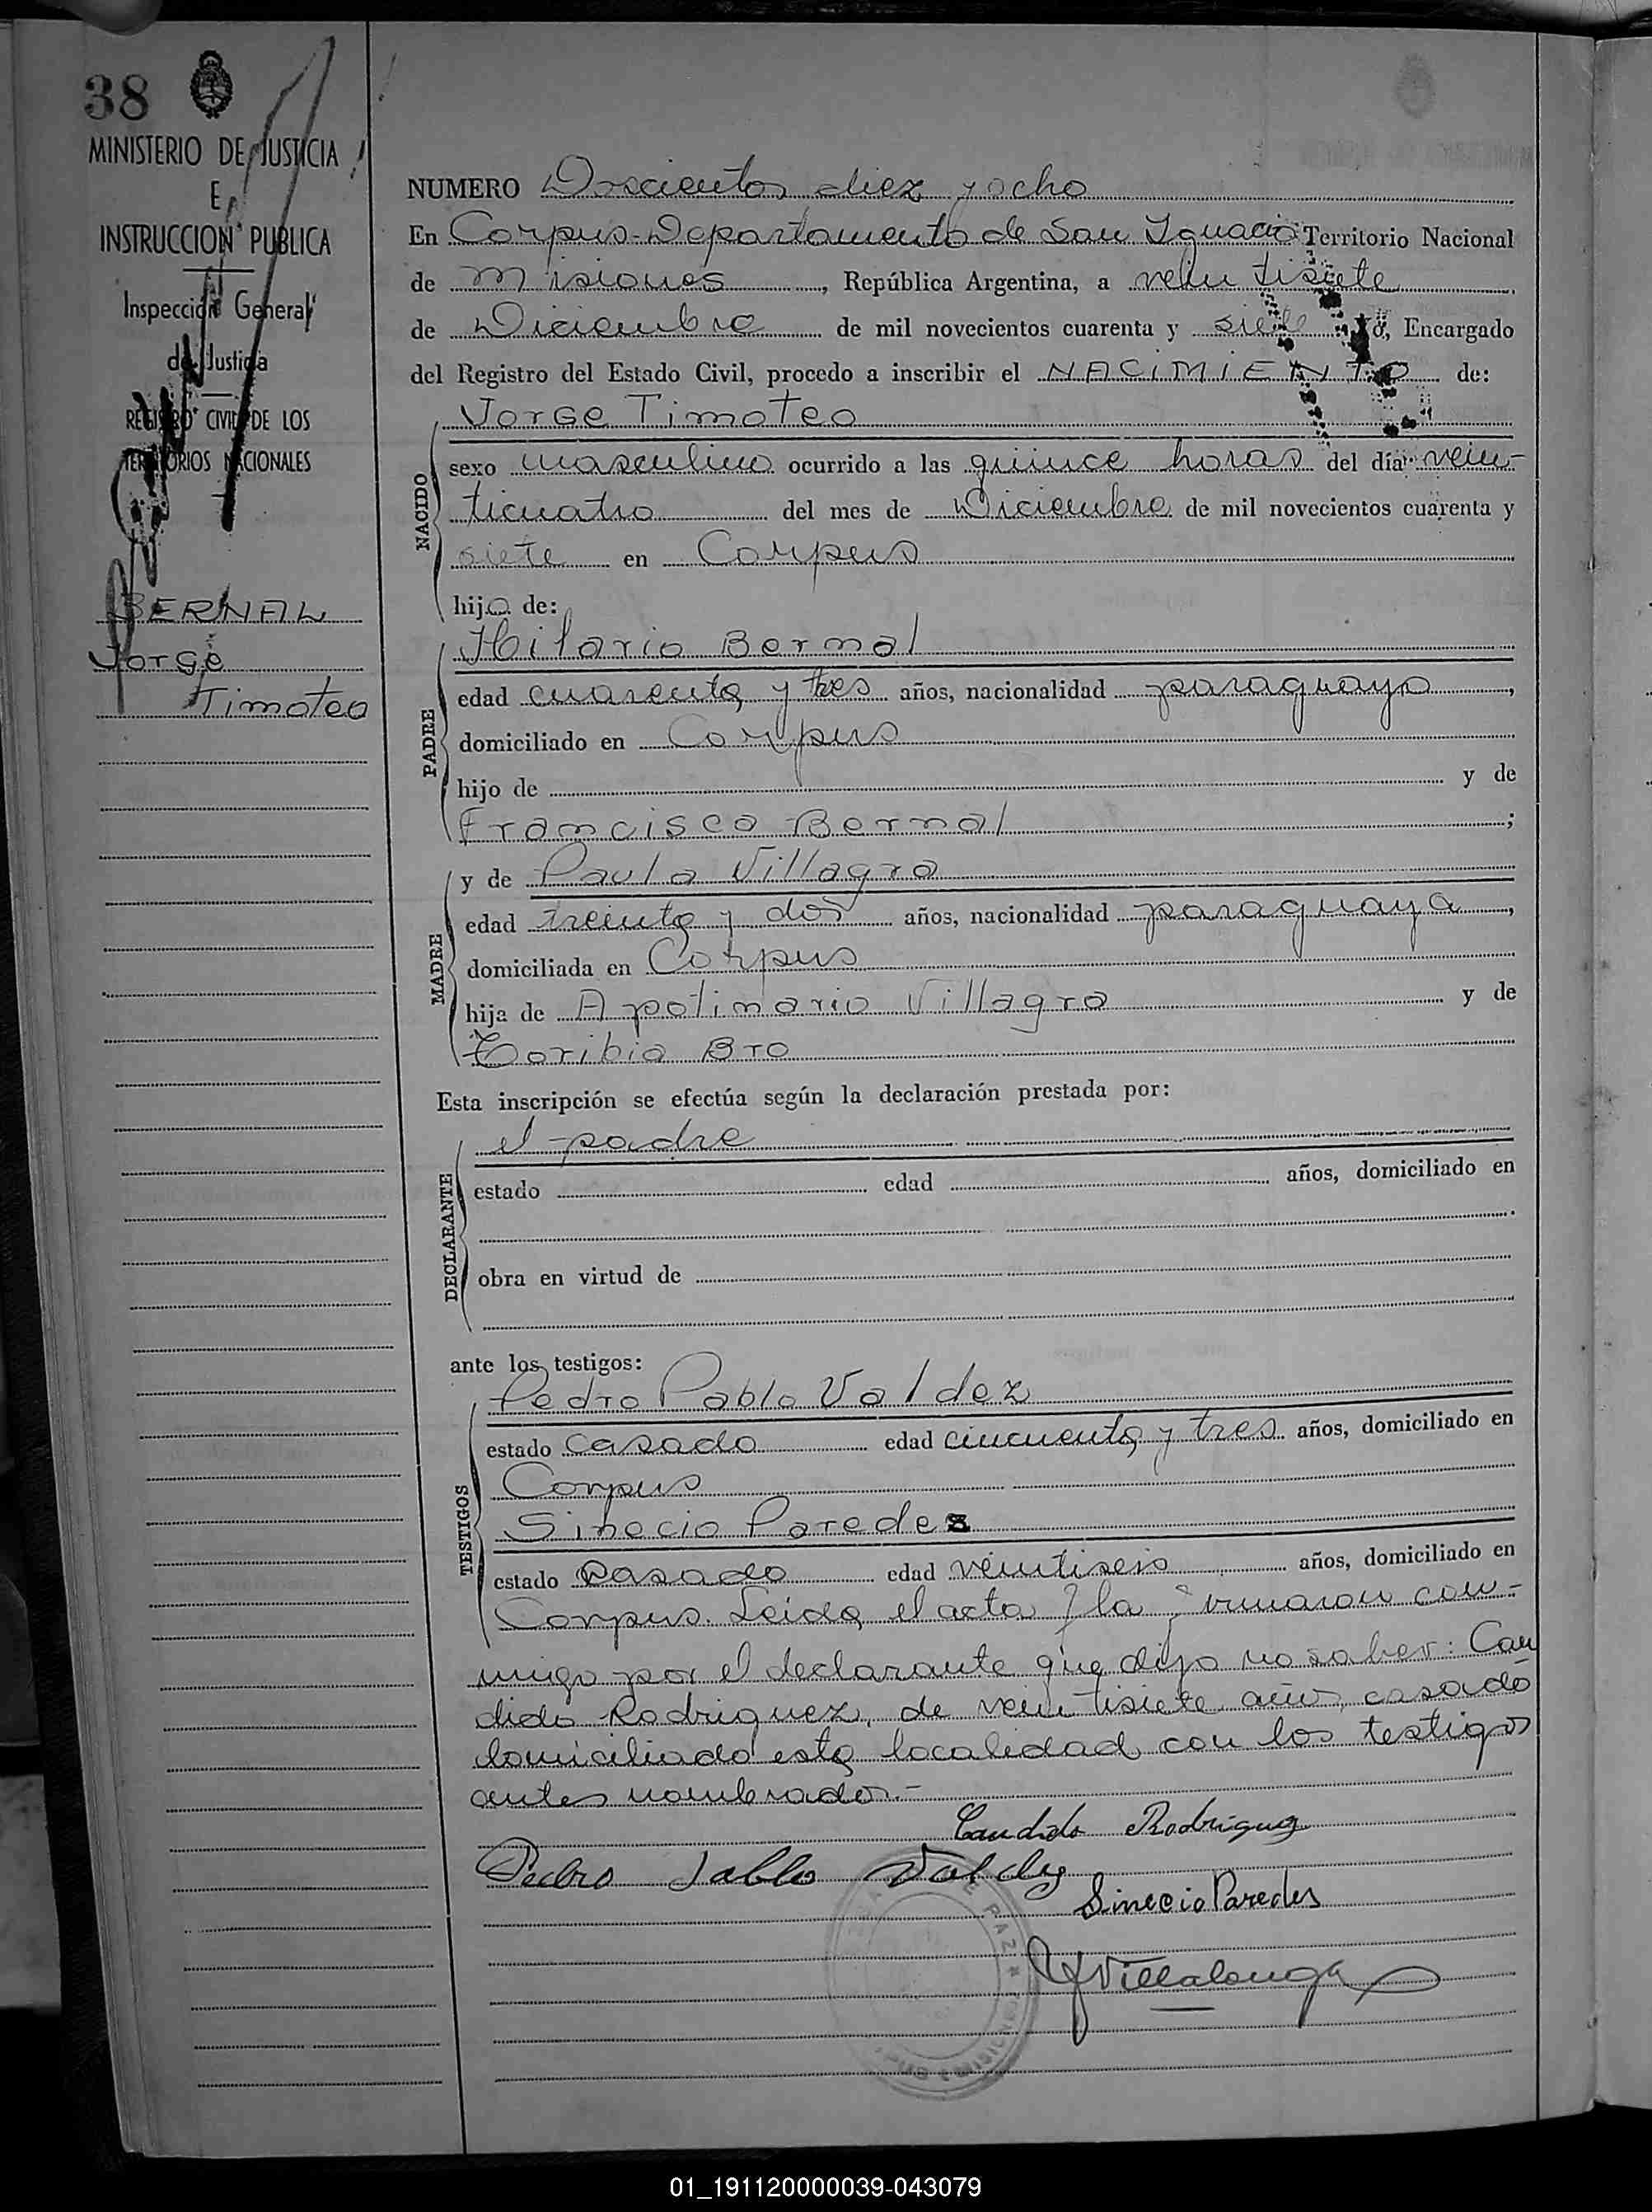 38
MINISTERIO DE JUSTICIA
E
INSTRUCCION PUBLICA
Inspección General
de Justicia
REGISTRO CIVIL DE LOS
TERRITORIOS NACIONALES
BERNAL
Jorge
Timoteo
NUMERO Doscientos diez y ocho
En Corpus-Departamento de San Ignacio Territorio Nacional
de Misiones, República Argentina, a veintisiete
de Diciembre de mil novecientos cuarenta y siete yo, Encargado
del Registro del Estado Civil, procedo a inscribir el NACIMIENTO de:
NACIDO
Jorge Timoteo
sexo masculino ocurrido a las quince horas del día vein-
ticuatro del mes de Diciembre de mil novecientos cuarenta y
siete en Corpus
hijo de:
PADRE
Hilario Bernal
edad cuarenta y tres años, nacionalidad paraguayo,
domiciliado en Corpus
hijo de y de
Francisca Bernal;
MADRE
y de Paula Villagra
edad treinta y dos años, nacionalidad paraguaya,
domiciliada en Corpus
hija de Apolinario Villagra y de
Toribia Bro
Esta inscripción se efectúa según la declaración prestada por:
DECLARANTE
el padre
estado edad años, domiciliado en
obra en virtud de
ante los testigos:
TESTIGOS
Pedro Pablo Valdez
estado casado edad cincuenta y tres años, domiciliado en
Corpus
Sinecio Paredes
estado casado edad veintiseis años, domiciliado en
Corpus. Leida el acta la firmaron con-
migo por el declarante que dijo no saber: Can
dido Rodriguez, de veintisiete años, casado
domiciliado esta localidad con los testigos
antes nombrados.-
Candido Rodriguez
Pedro Pablo Valdez
Sinecio Paredes
Villalonga
DE PAZ
01_191120000039-043079